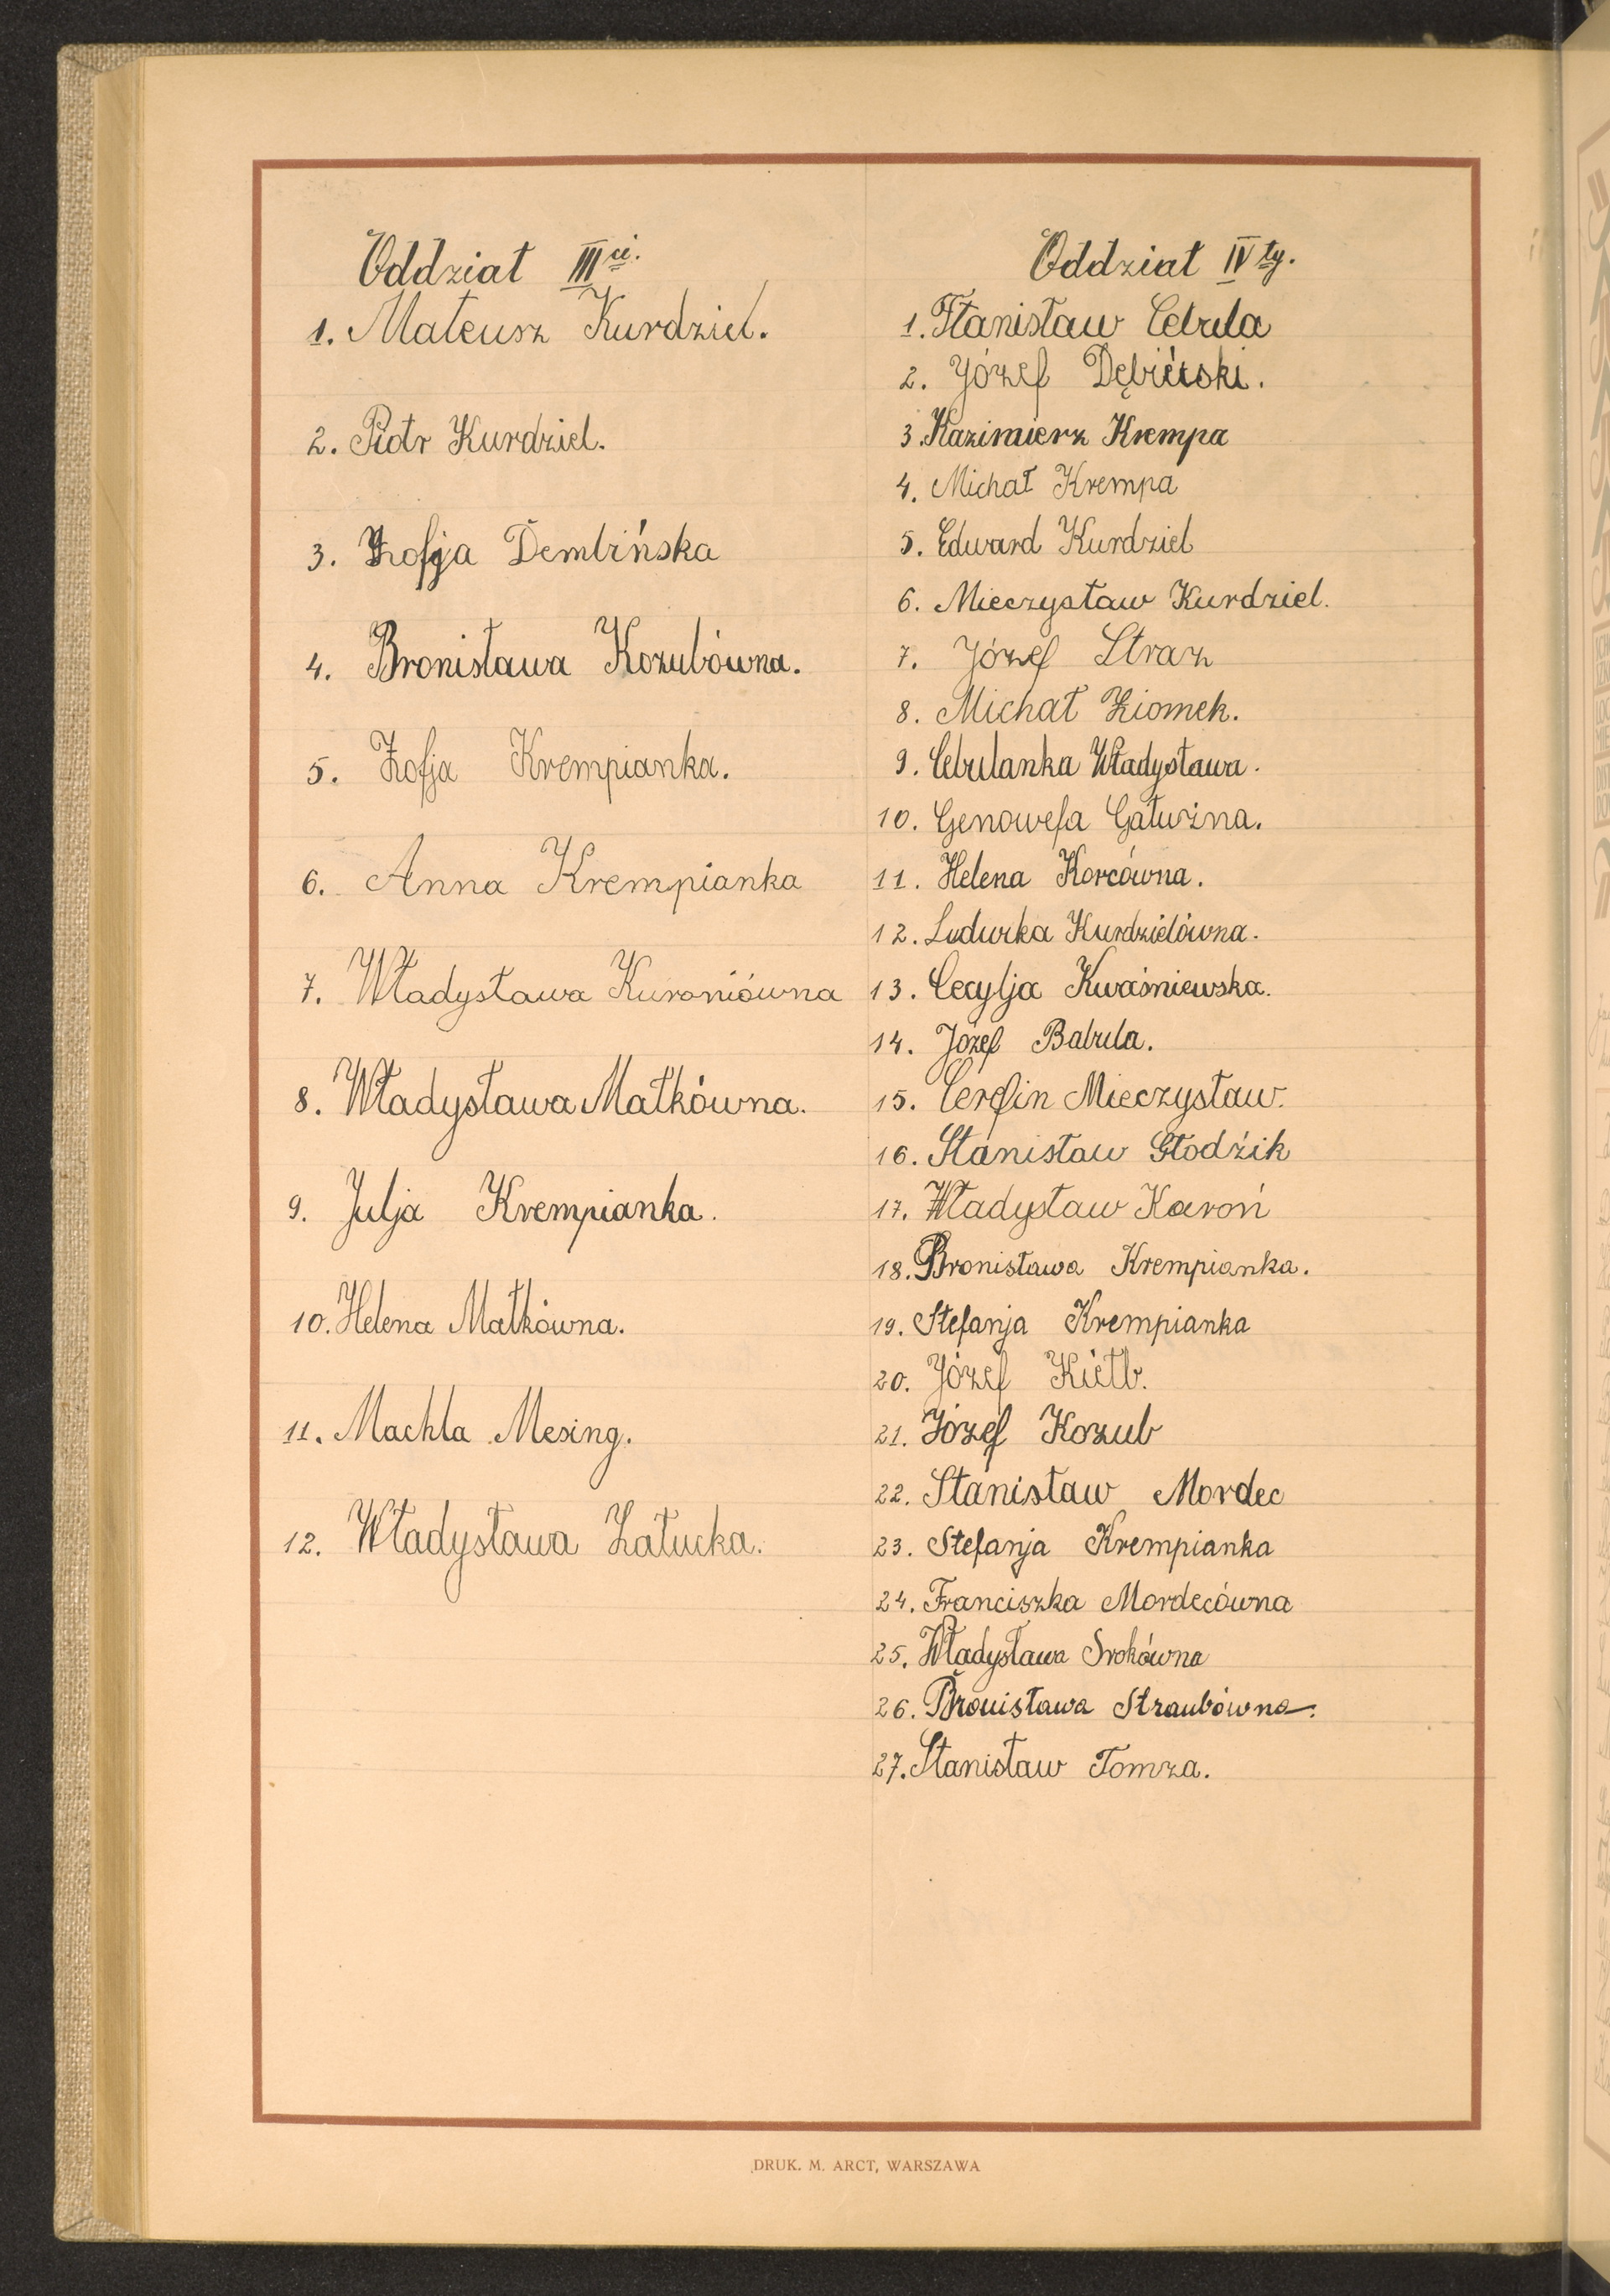 Oddział III ci.
1. Mateusz Kurdziel.
2. Piotr Kurdziel.
3. Zofja Dembińska
4. Bronisława Kozubówna.
5. Zofja Krempianka.
6. Anna Krempianka
7. Władysława Kuroniówna
8. Władysława Małkówna.
9. Julja Krempianka.
10. Helena Małkówna.
11. Machla Mesing.
12. Władysława Załucka.
Oddział IV ty.
1. Stanisław Cebula
2. Józef
3. Kazimierz Krempa
4. Michał Krempa
5. Edward Kurdziel
6. Mieczysław Kurdziel.
7. Józef Straz
8. Michał Ziomek.
9. Cebulanka Władysława.
10. Genowefa
11. Helena Korcówna.
12. Ludwika Kurdzielówna.
13. Cecylja Kwaśniewska.
14. Józef Babula.
15. Cerfin Mieczysław.
16. Stanisław Głodzik
17. Władysław Karoń
18. Bronisława Krempianka.
19. Stefanja Krempianka
20. Józef Kiełb.
21. Józef Kozub
22. Stanisław Mordec
23. Stefanja Krempianka
24. Franciszka Mordecówna
25. Władysława Srokówna
26. Bronisława Straubówna.
27. Stanisław Tomza.
DRUK. M. ARCT, WARSZAWA